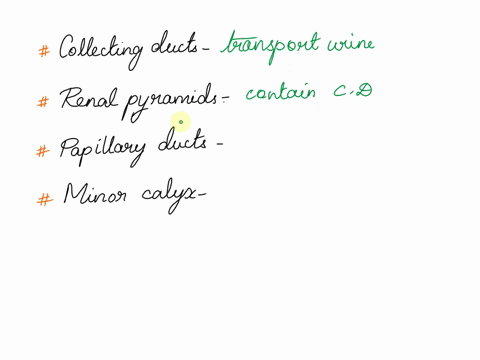 # Collecting ducts - transport urine
# Renal pyramids - contain C.D
# Papillary ducts -
# Minor calyx -